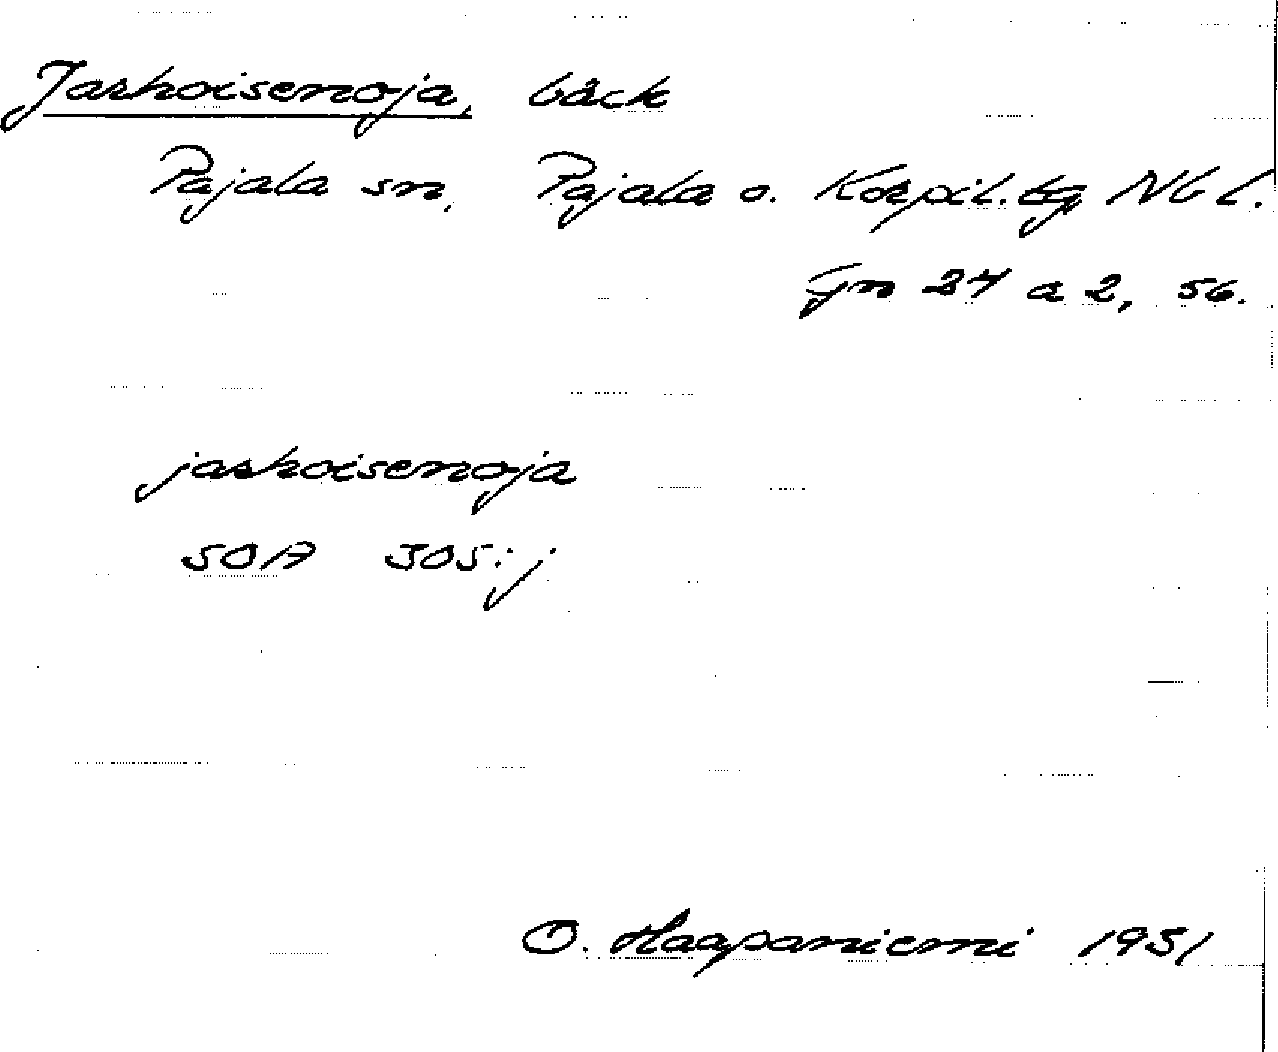 Jarhoisenoja, bäck
Pajala sn, Pajala o. Korpil. tg Nb l.
Gn 24 a 2, 56.
jarhoisenoja
SOA 305:j
O. Haapaniemi 1951